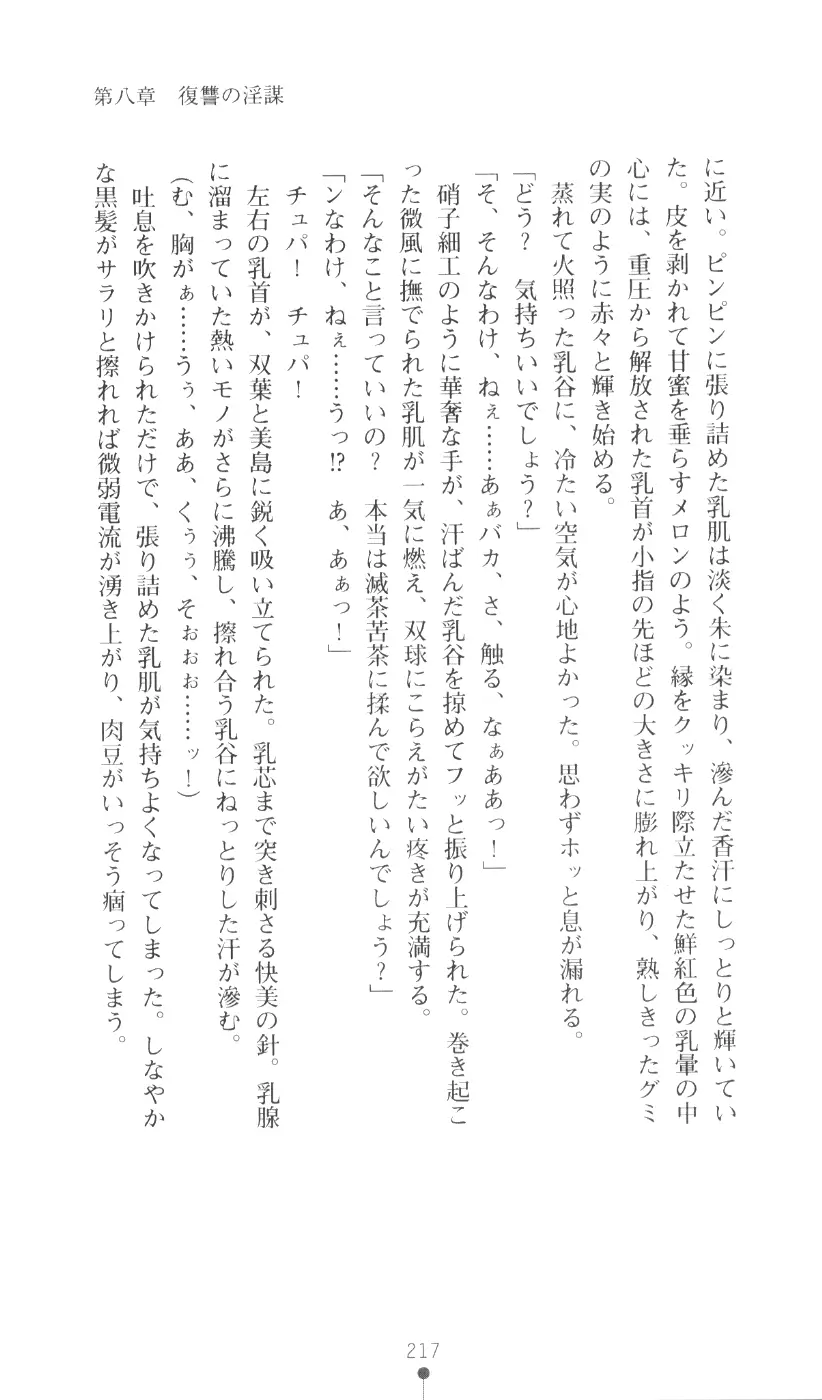 第八章　復讐の淫謀
に近い。ピンピンに張り詰めた乳肌は淡く朱に染まり、滲んだ香汗にしっとりと輝いてい
た。皮を剥かれて甘蜜を垂らすメロンのよう。縁をクッキリ際立たせた鮮紅色の乳暈の中
心には、重圧から解放された乳首が小指の先ほどの大きさに膨れ上がり、熟しきったグミ
の実のように赤々と輝き始める。
　蒸れて火照った乳谷に、冷たい空気が心地よかった。思わずホッと息が漏れる。
「どう？　気持ちいいでしょう？」
「そ、そんなわけ、ねぇ……あぁバカ、さ、触る、なぁああっ！」
　硝子細工のように華奢な手が、汗ばんだ乳谷を掠めてフッと振り上げられた。巻き起こ
った微風に撫でられた乳肌が一気に燃え、双球にこらえがたい疼きが充満する。
「そんなこと言っていいの？　本当は滅茶苦茶に揉んで欲しいんでしょう？」
「ンなわけ、ねぇ……うっ!?　あ、あぁっ！」
　チュパ！　チュパ！
　左右の乳首が、双葉と美島に鋭く吸い立てられた。乳芯まで突き刺さる快美の針。乳腺
に溜まっていた熱いモノがさらに沸騰し、擦れ合う乳谷にねっとりした汗が滲む。
（む、胸がぁ……うぅ、ああ、くぅぅ、そぉぉぉ……ッ！）
　吐息を吹きかけられただけで、張り詰めた乳肌が気持ちよくなってしまった。しなやか
な黒髪がサラリと擦れれば微弱電流が湧き上がり、肉豆がいっそう痼ってしまう。
217